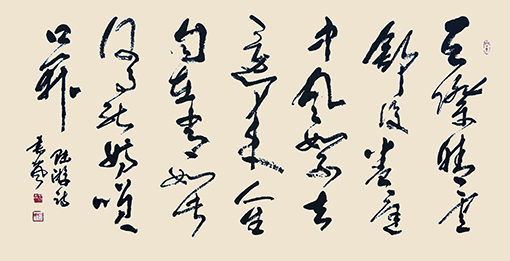 天際晴雲
舒復卷庭
中風絮去
還來人生
自在常如此
何事能妨笑
口開
陸游詩